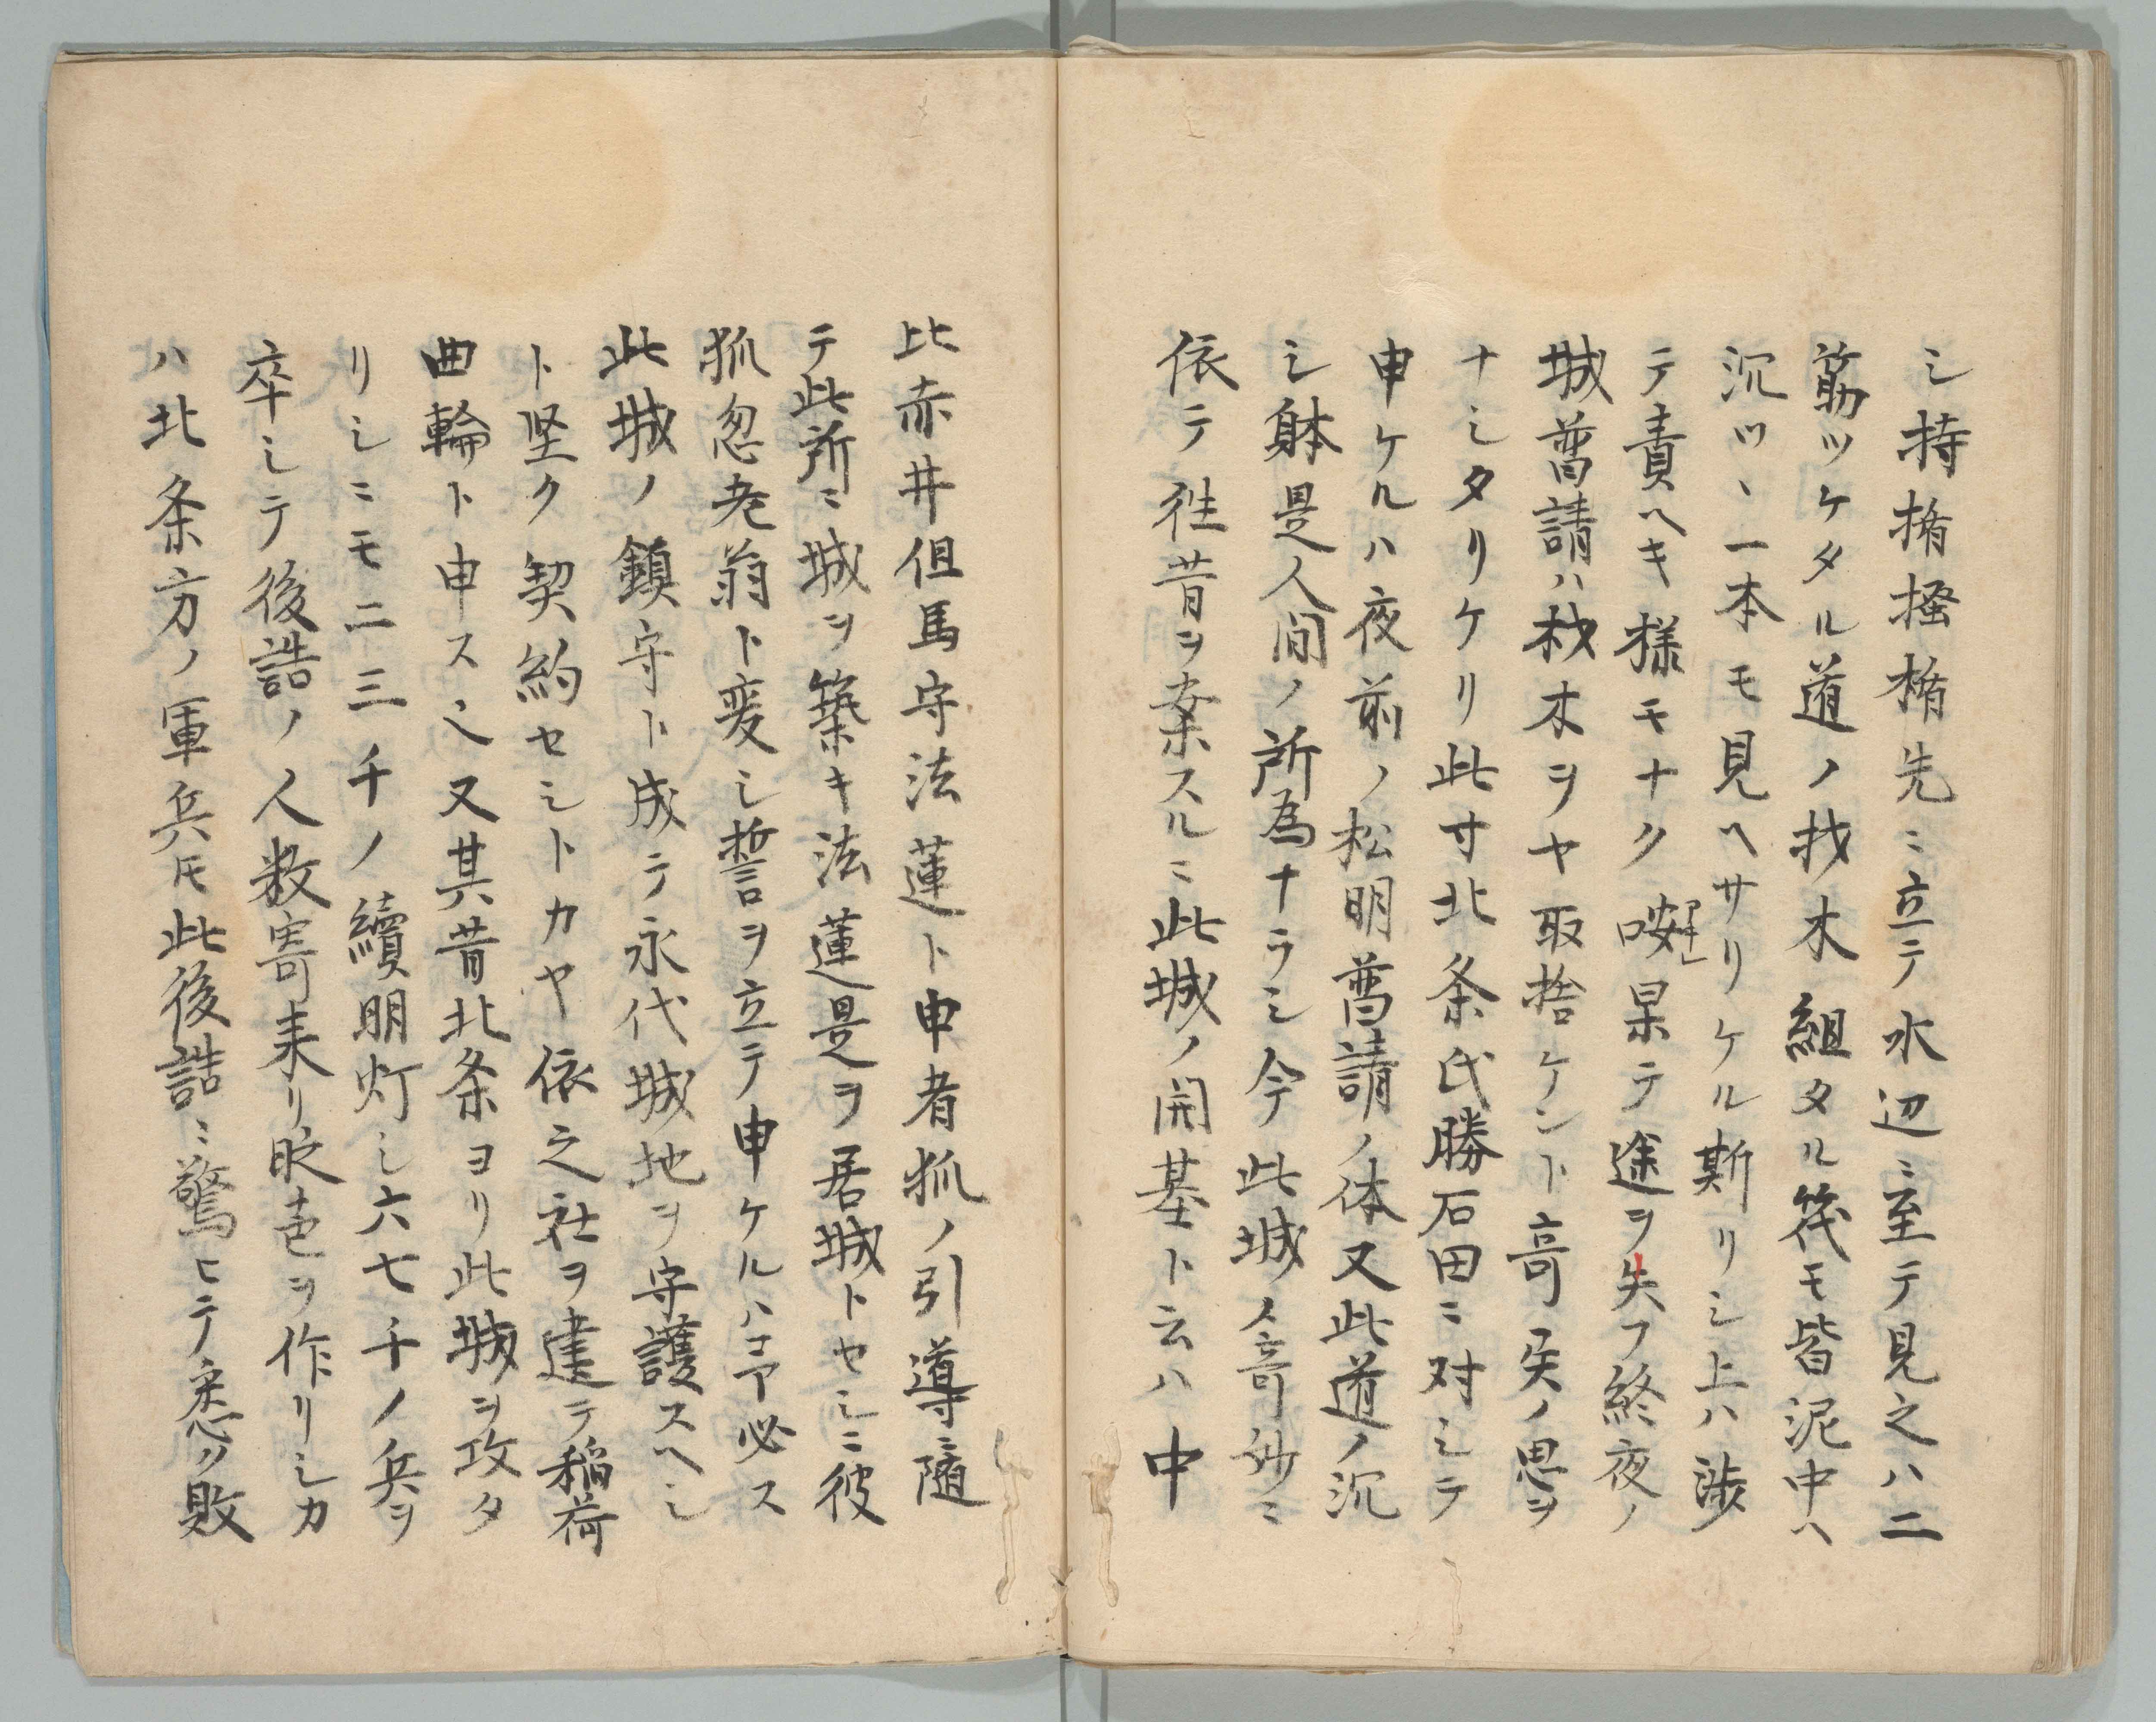 シ持楯掻楯先ニ立テ水辺ニ至テ見之ハ二
筋ツケタル道ノ材木組タル筏モ皆泥中ヘ
沉ツヽ一本モ見ヘサリケル斯リシ上ハ渉
テ責ヘキ様モナク唵呆テ途ヲ失フ終夜ノ
城普請ハ材木ヲヤ取捨ケント奇異ノ思ヲ
ナシタリケリ此寸北条氏勝石田ニ対シテ
申ケルハ夜前ノ松明普請ノ体又此道ノ沉
シ躰是人間ノ所為ナラシ今此城ノ奇妙ニ
依テ往昔ヲ案スルニ此城ノ開基ト云ハ中
比赤井但馬守法蓮ト申者狐ノ引導ニ随
テ此所ニ城ヲ築キ法蓮是ヲ居城トセシニ彼
狐忽老翁ト変シ誓ヲ立テ申ケルハ予必ス
此城ノ鎮守ト成テ永代城地ヲ守護スヘシ
ト堅ク契約セシトカヤ依之社ヲ建テ稲荷
曲輪ト申ス之又其昔北条ヨリ此城ヲ攻タ
リシニモ二三千ノ續明灯シ六七千ノ兵ヲ
卒シテ後詰ノ人数寄来リ色ヲ作リシカ
ハ北条方ノ軍兵モ此後詰ニ驚ヒテ悉ク敗